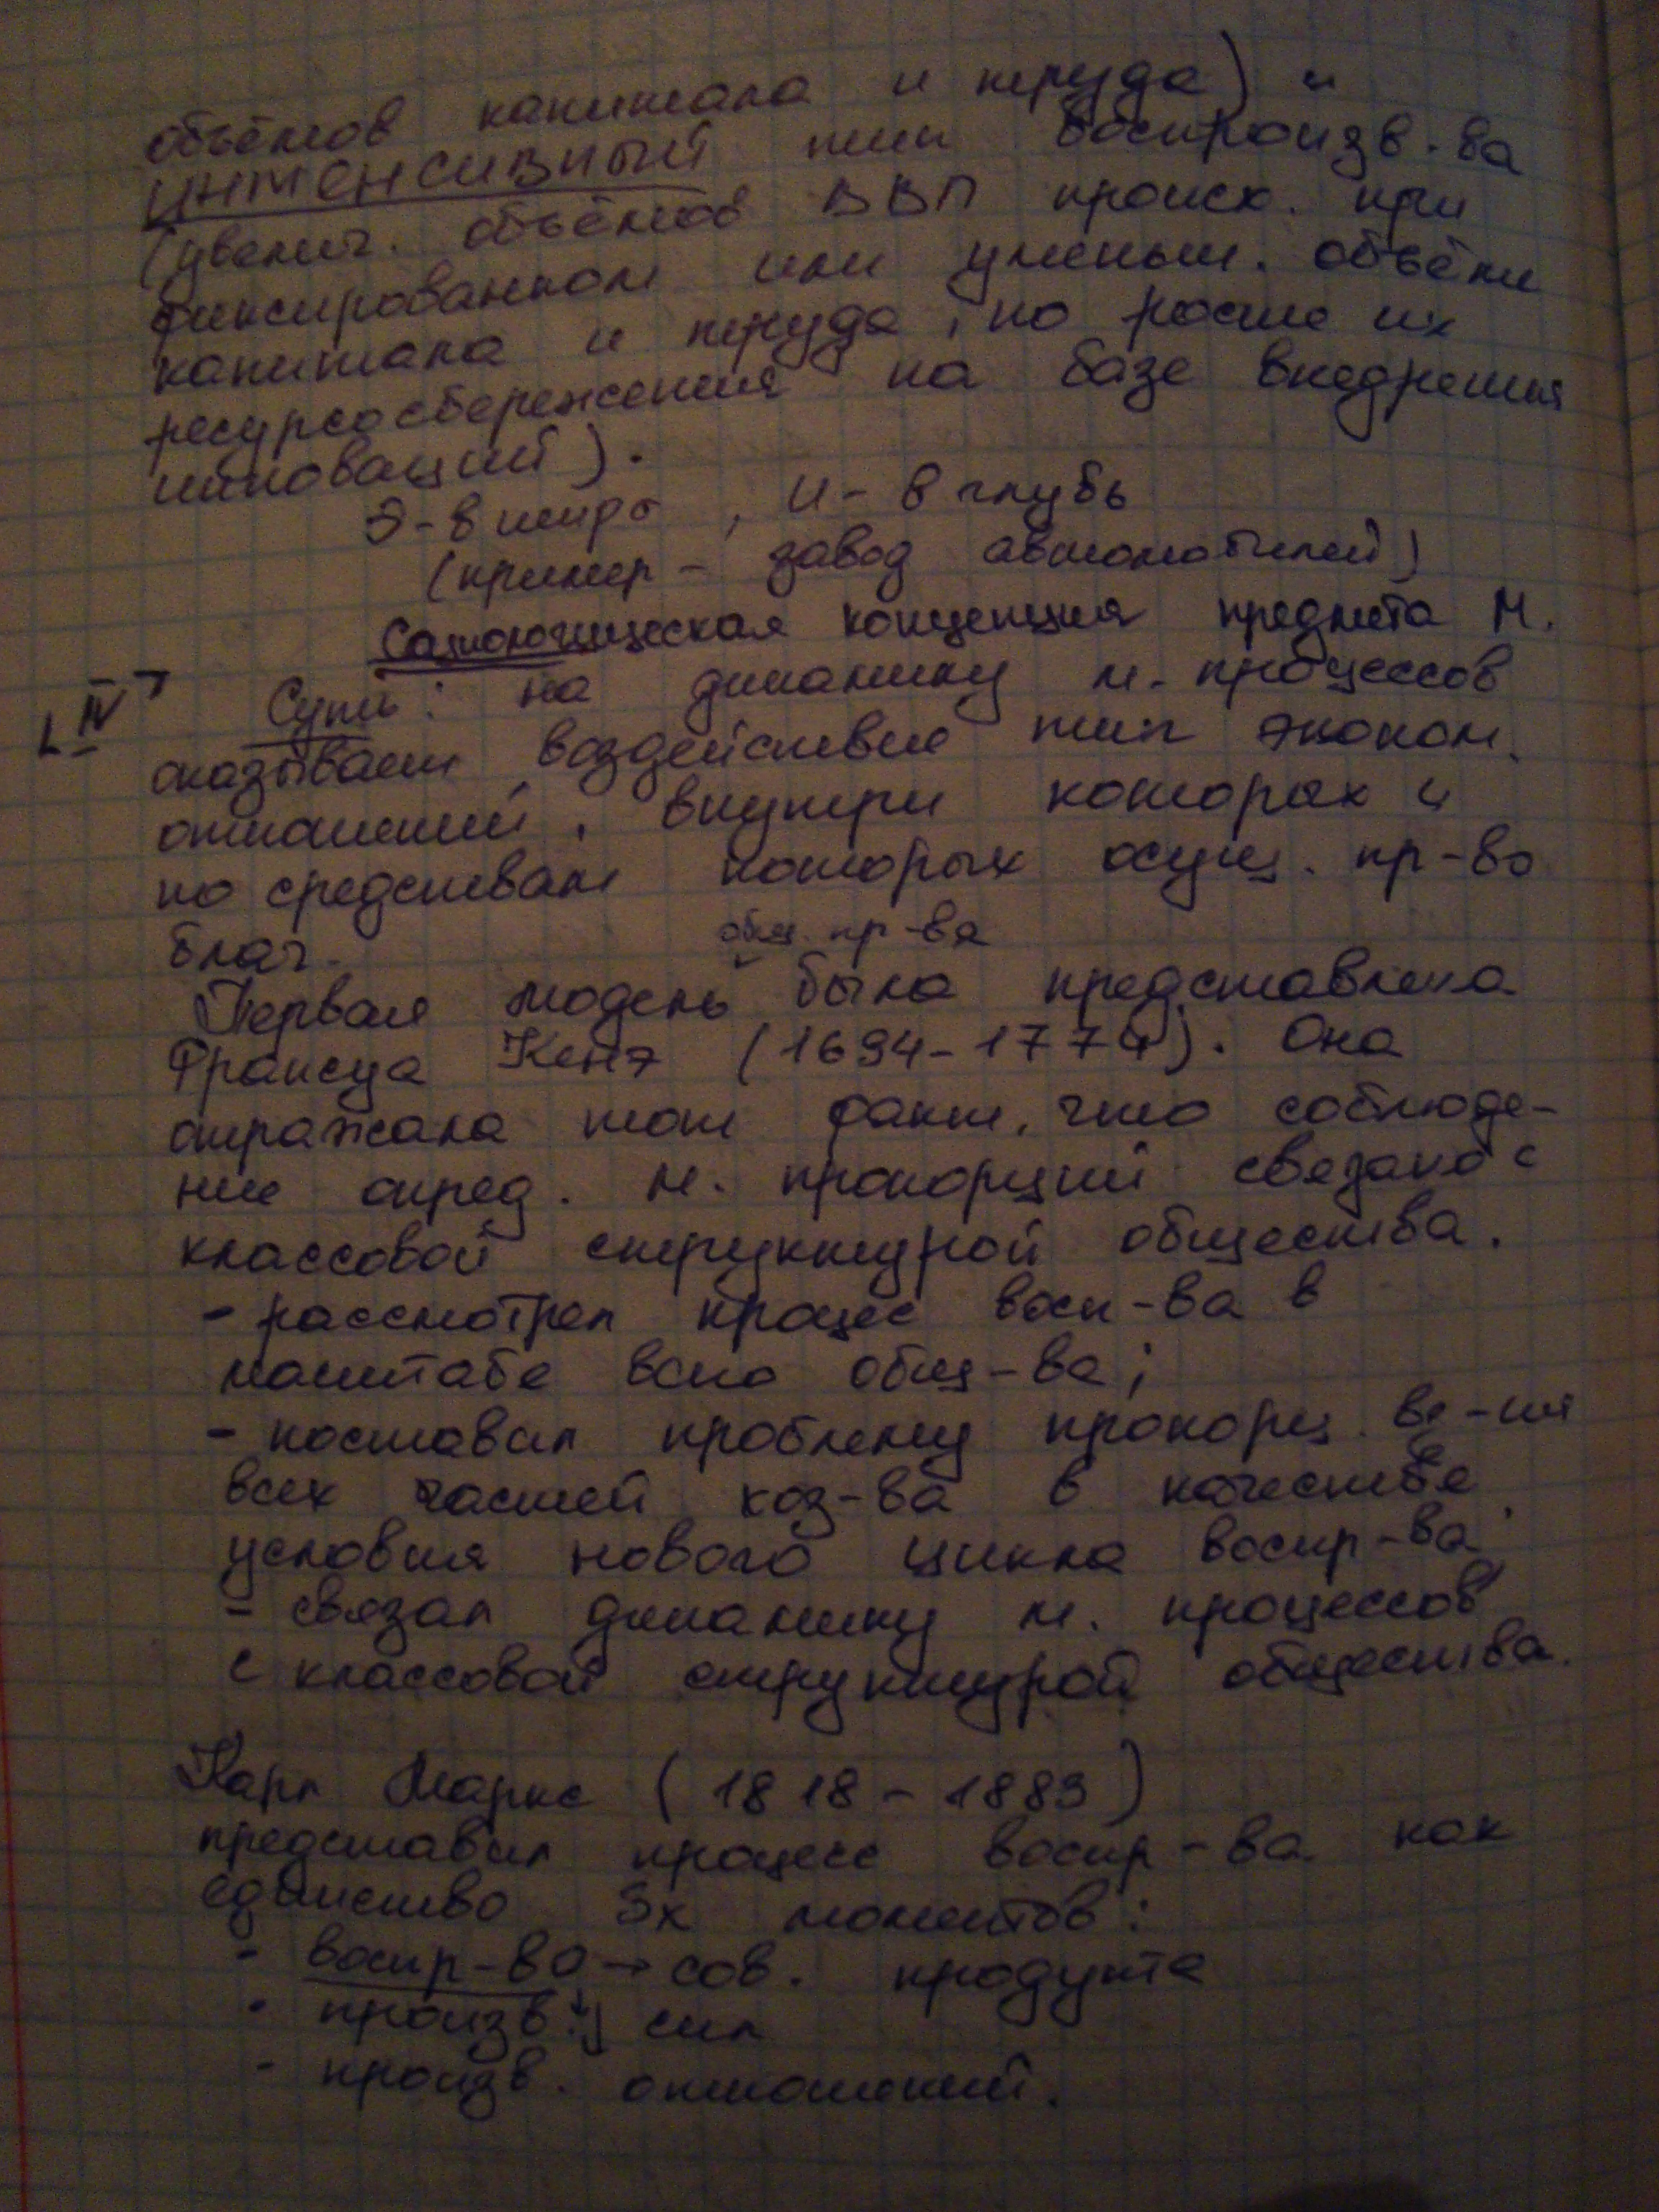 объёмов капитала и труда) и
интенсивный тип воспроизв-ва
(увелич. объёмов ВВП происх. при
фиксированном или уменьш. объёме
капитала и труда, но росте их
ресурсосбережения на базе внедрения
инноваций).
Э-вширь, И-вглубь
(пример - завод автомобилей)
концепция предмета М.
IV Суть: на динамику м. процессов
оказывает воздействие тип эконом.
отношений, внутри которых и
по средствам которых осущ. пр-во
благ.
общ. пр-ва
Первая модель была представлена
Франсуа Кенэ (1694-1774). Она
отражала тот факт, что соблюде-
ние опред. м. пропорций связано с
классовой структурой общества.
- рассмотрел процес восп-ва в
масштабе всего общ-ва;
- поставил проблему пропорц.
всех частей хоз-ва в качестве
условия нового цикла воспр-ва
- связал динамику м. процессов
с классовой структурой общества.
Карл Маркс (1818-1883)
представил процесс воспр-ва как
единство 3х моментов:
- воспр-во → сов. продукта
- произв. сил
- произв. отношений.